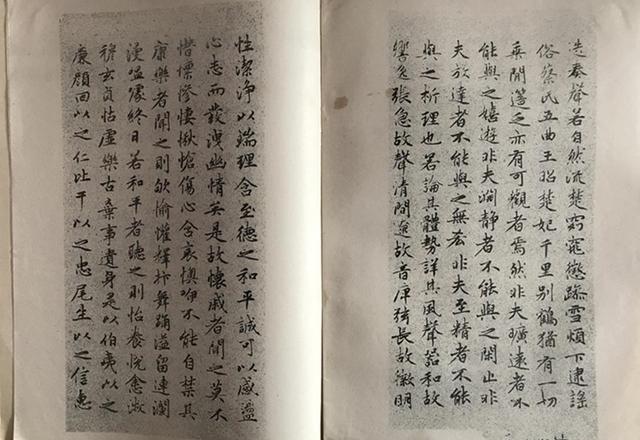 迭奏聲若自然流楚窈窕懲躁雪煩下逮謠
俗蔡氏五曲王昭楚妃千里別鶴猶有一切
乘間簉乏亦有可觀者焉然非夫曠遠者不
能與之嬉遊非夫淵靜者不能與之閑止非
夫放達者不能與之無吝非夫至精者不能
與之析理也若論其體勢詳其風聲器和故
響逸張急故聲清間遼故音庳絃長故徽鳴
性潔淨以端理含至德之和平誠可以感盪
心志而發洩幽情矣是故懷戚者聞之莫不
憯懍慘悽愀愴傷心含哀懊咿不能自禁其
康樂者聞之則欨愉懽釋抃舞踊溢留連瀾
漫嗢噱終日若和平者聽之則怡養悅悆淑
穆玄真恬虛樂古棄事遺身是以伯夷以之
廉顏回以之仁比干以之忠尾生以之信惠